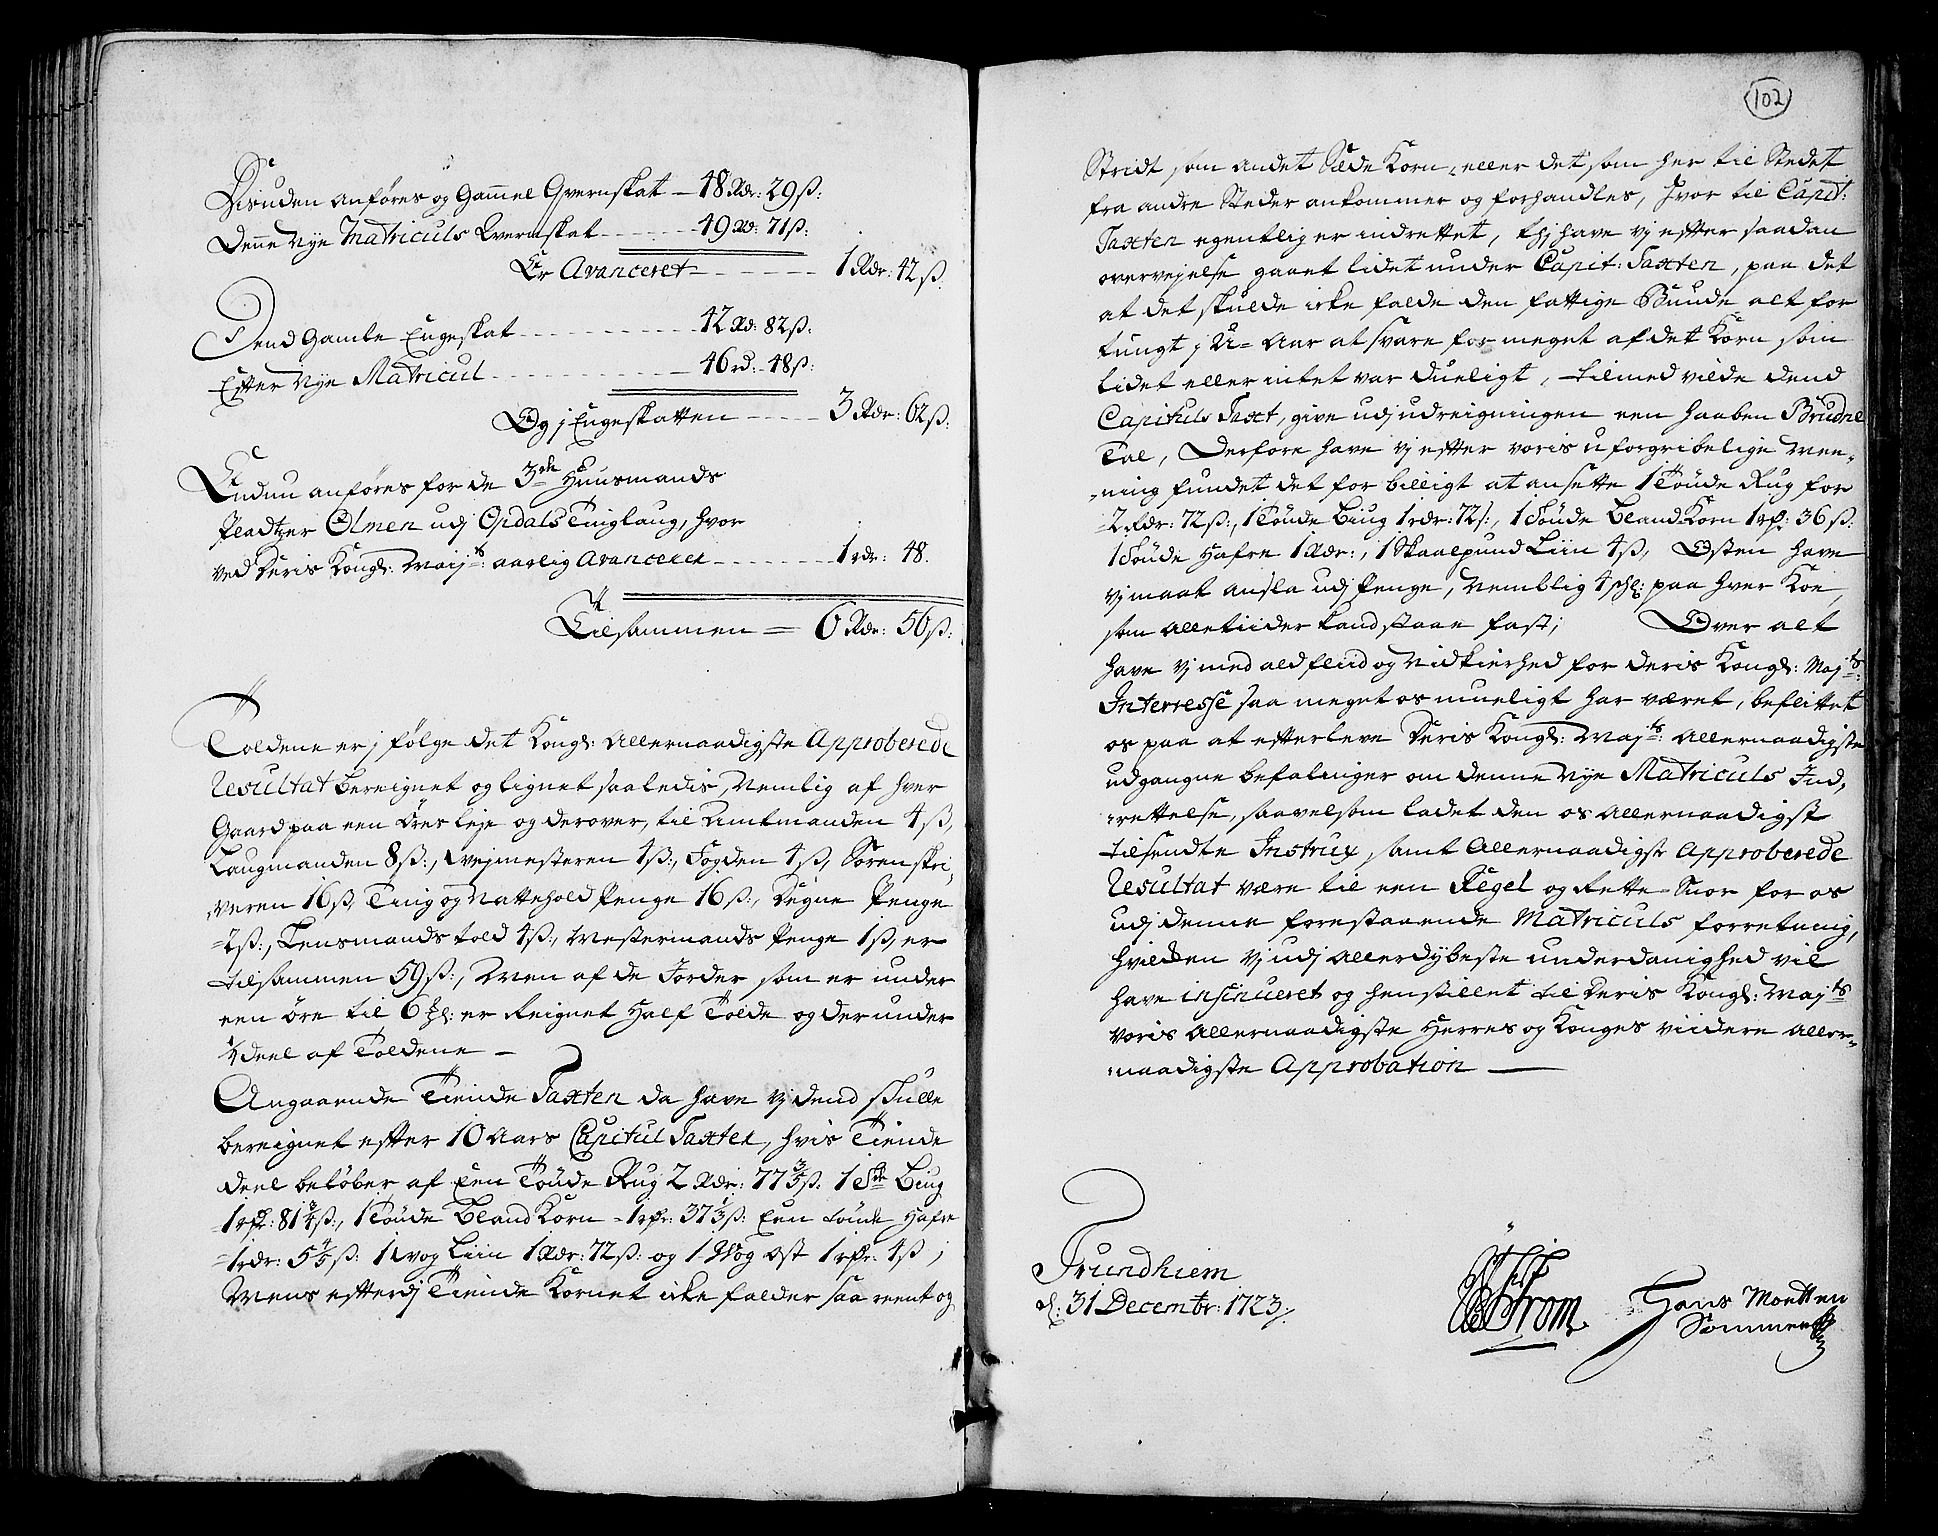 Desuden anføres og Gammel Qvernskat — 48 Rdr: 29 ß:
Denne Nye Matriculs Qvernskat - - - - 49 Rd: 71 ß:
Er Avanceret - - - - - 1 Rdr: 42 ß.
Dend Gamle Engeskat - - - - - - - 42 Rd: 82 ß:
Efter Nye Matricul - - - - - - - 46 rd: 48 ß:
Og j Engeskatten - - - - 3 Rdr: 62 ß:
Endnu anføres for de 3de Huusmands
Pladtzer Olmen udj Opdals Tinglaug, hvor
ved Deris Kongl: Maijts: aarlig Avancerer - - - - - 1 rdr: 48.
Tilsammen = 6 Rdr: 56 ß:
Toldene er j følge det Kongl: Allernaadigste Approberede
Resultat bereignet og lignet saaledis, Nemlig af hver
Gaard paa een Øres leje og derover, til Amtmanden 4 ß,
Laugmanden 8 ß:, Wejmesteren 4 ß:, Fogden 4 ß, Sorenskri,
,veren 16 ß, Ting og Nattehold Penge 16 ß:, Degne Penge
2 ß:, Lensmands told 4 ß:, Westermands Penge 1 ß, er
tilsammen 59 ß:, Men af de Jorder som er under
een øre til 6 : er Reignet Half Tolde og der under
1/4 deel af Toldene —
Angaaende Tiende Taxten da have Vj dend skulle
bereignet efter 10 Aars Capitul Taxter, hvis Tiende
deel beløber af Een Tønde Rug 2 Rdr: 77 3/5 ß. 1 Tde Biug
1 rdr: 81 3/4 ß:, 1 Tønde Bland Korn - 1 rdr: 37 1/3 ß: Een tønde Hafre
- 1 rdr: 5 4/5 ß: 1 Wog Liin 1 Rdr: 72 ß: og 1 Wog Ost 1 rdr: 4 ß ;
Mens efterdj Tiende Kornet icke falder saa reent og
102
Stridt som andet Sæde Korn, eller det som her til Stedet
fra andre Steder ankommer og forhandles, hvor til Capit:
Taxten egentlig er indrettet, thj have vj efter saadan
overvejelse gaaet lidet under Capit: Taxten, paa det
at det skulde icke falde den fattige Bunde alt for
tungt j U= Aar at svare for meget af det Korn som
lidet eller intet var dueligt, tilmed vilde dend
Capituls Taxt, give udj udreigningen een haaben Brudne
Tal, Derfore have vj efter voris uforgribelige Men,
,ning fundet det for billigt at ansette 1 Tønde Rug for
2 Rdr: 72 ß:, 1 Tønde Biug 1 rdr: 72 ß:, 1 Tønde Bland Korn 1 rdr: 36 ß:
1 Tønde Hafre 1 Rdr:, 1 Skaalpund Liin 4 ß, Osten have
vj maat ansla udj Penge, Nemblig 4 : paa hver Koe,
som alletiider kand staae fast; Over alt
have vj med ald fliid og Nidkierhed for Deris Kongl: Majts:
Interresse saa meget os mueligt har været, beflittet
os paa at efterleve Deris Kongl: Majts: Allernaadigste
udgangne befalinger om denne Nye Matriculs Ind,
,rettelse, saavelsom ladet den os Allernaadigst
tilsendte Instrux, samt Allernaadigst Approberede
Resultat være til een Regel og Rette-Snor for os
udj denne forestaaende Matriculs forretning,
hvilden vj udj Allerdybeste underdanighed vil
have insinueret og henstillet til Deris Kongl: Majts
voris Allernaadigste Herres og Konges viidere Aller-
,naadigste Approbation —
Trundhiem
d: 31 Decembr: 1723 /
Hans Moetten
Sommer